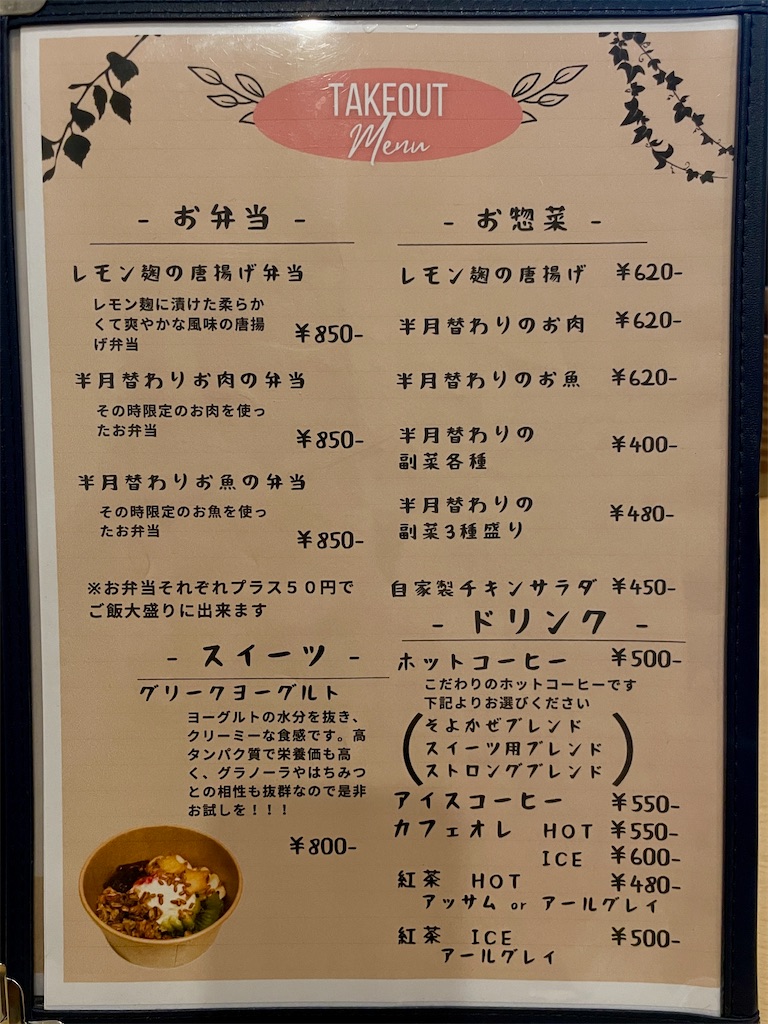 TAKEOUT
Menu
- お弁当 -
レモン麹の唐揚げ弁当
レモン麹に漬けた柔らか
くて爽やかな風味の唐揚
げ弁当
¥850-
半月替わりお肉の弁当
その時限定のお肉を使っ
たお弁当
¥850-
半月替わりお魚の弁当
その時限定のお魚を使っ
たお弁当
¥850-
※お弁当それぞれプラス５０円で
ご飯大盛りに出来ます
- スイーツ -
グリークヨーグルト
ヨーグルトの水分を抜き、
クリーミーな食感です。高
タンパク質で栄養価も高
く、グラノーラやはちみつ
との相性も抜群なので是非
お試しを！！！
¥800-
- お惣菜 -
レモン麹の唐揚げ ¥620-
半月替わりのお肉 ¥620-
半月替わりのお魚 ¥620-
半月替わりの
副菜各種 ¥400-
半月替わりの
副菜3種盛り ¥480-
自家製チキンサラダ ¥450-
- ドリンク -
ホットコーヒー ¥500-
こだわりのホットコーヒーです
下記よりお選びください
(そよかぜブレンド
スイーツ用ブレンド
ストロングブレンド)
アイスコーヒー ¥550-
カフェオレ HOT ¥550-
ICE ¥600-
紅茶 HOT ¥480-
アッサム or アールグレイ
紅茶 ICE ¥500-
アールグレイ